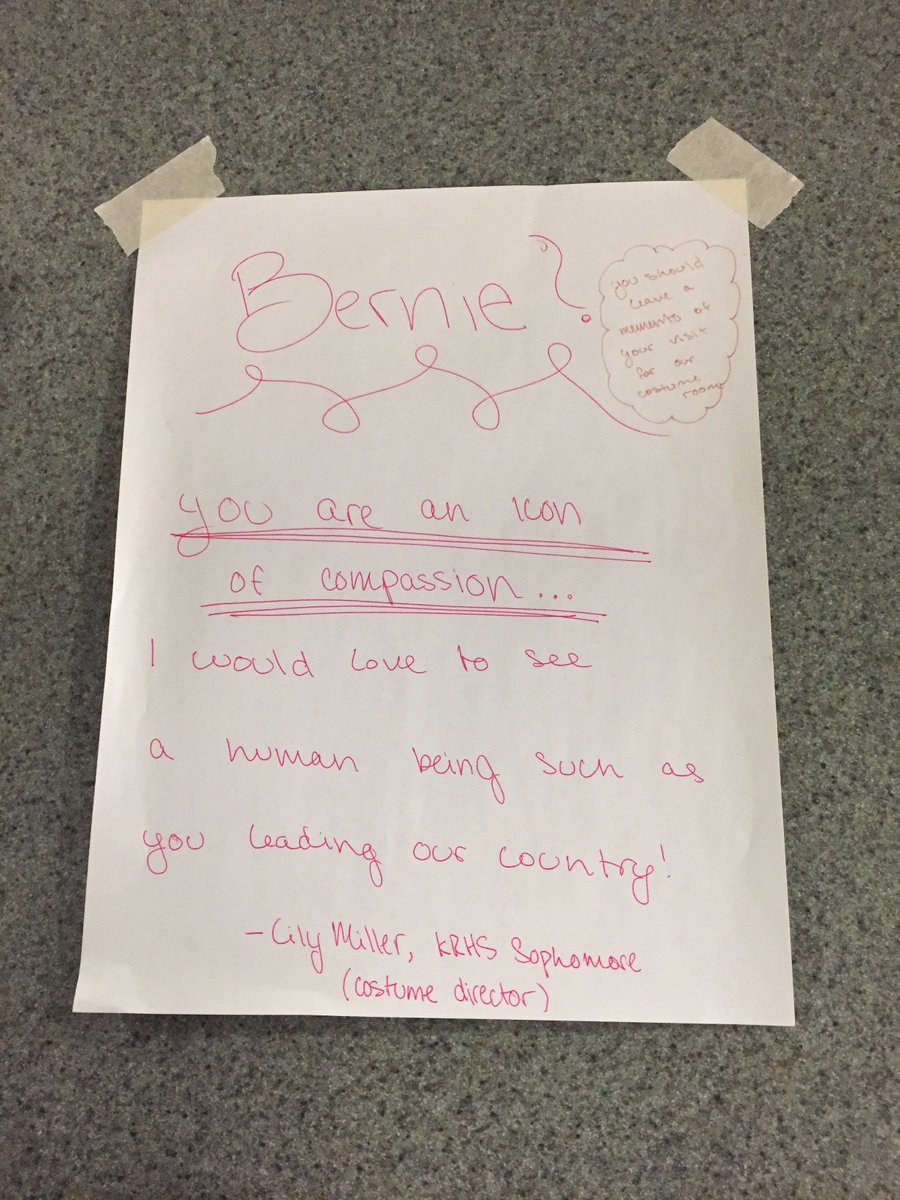 Bernie?
you should
leave a
memento of
your visit
for our
costume
room
you are an icon
of compassion...
I would love to see
a human being such as
you leading our country!
- Lily Miller, KRHS Sophomore
(costume director)